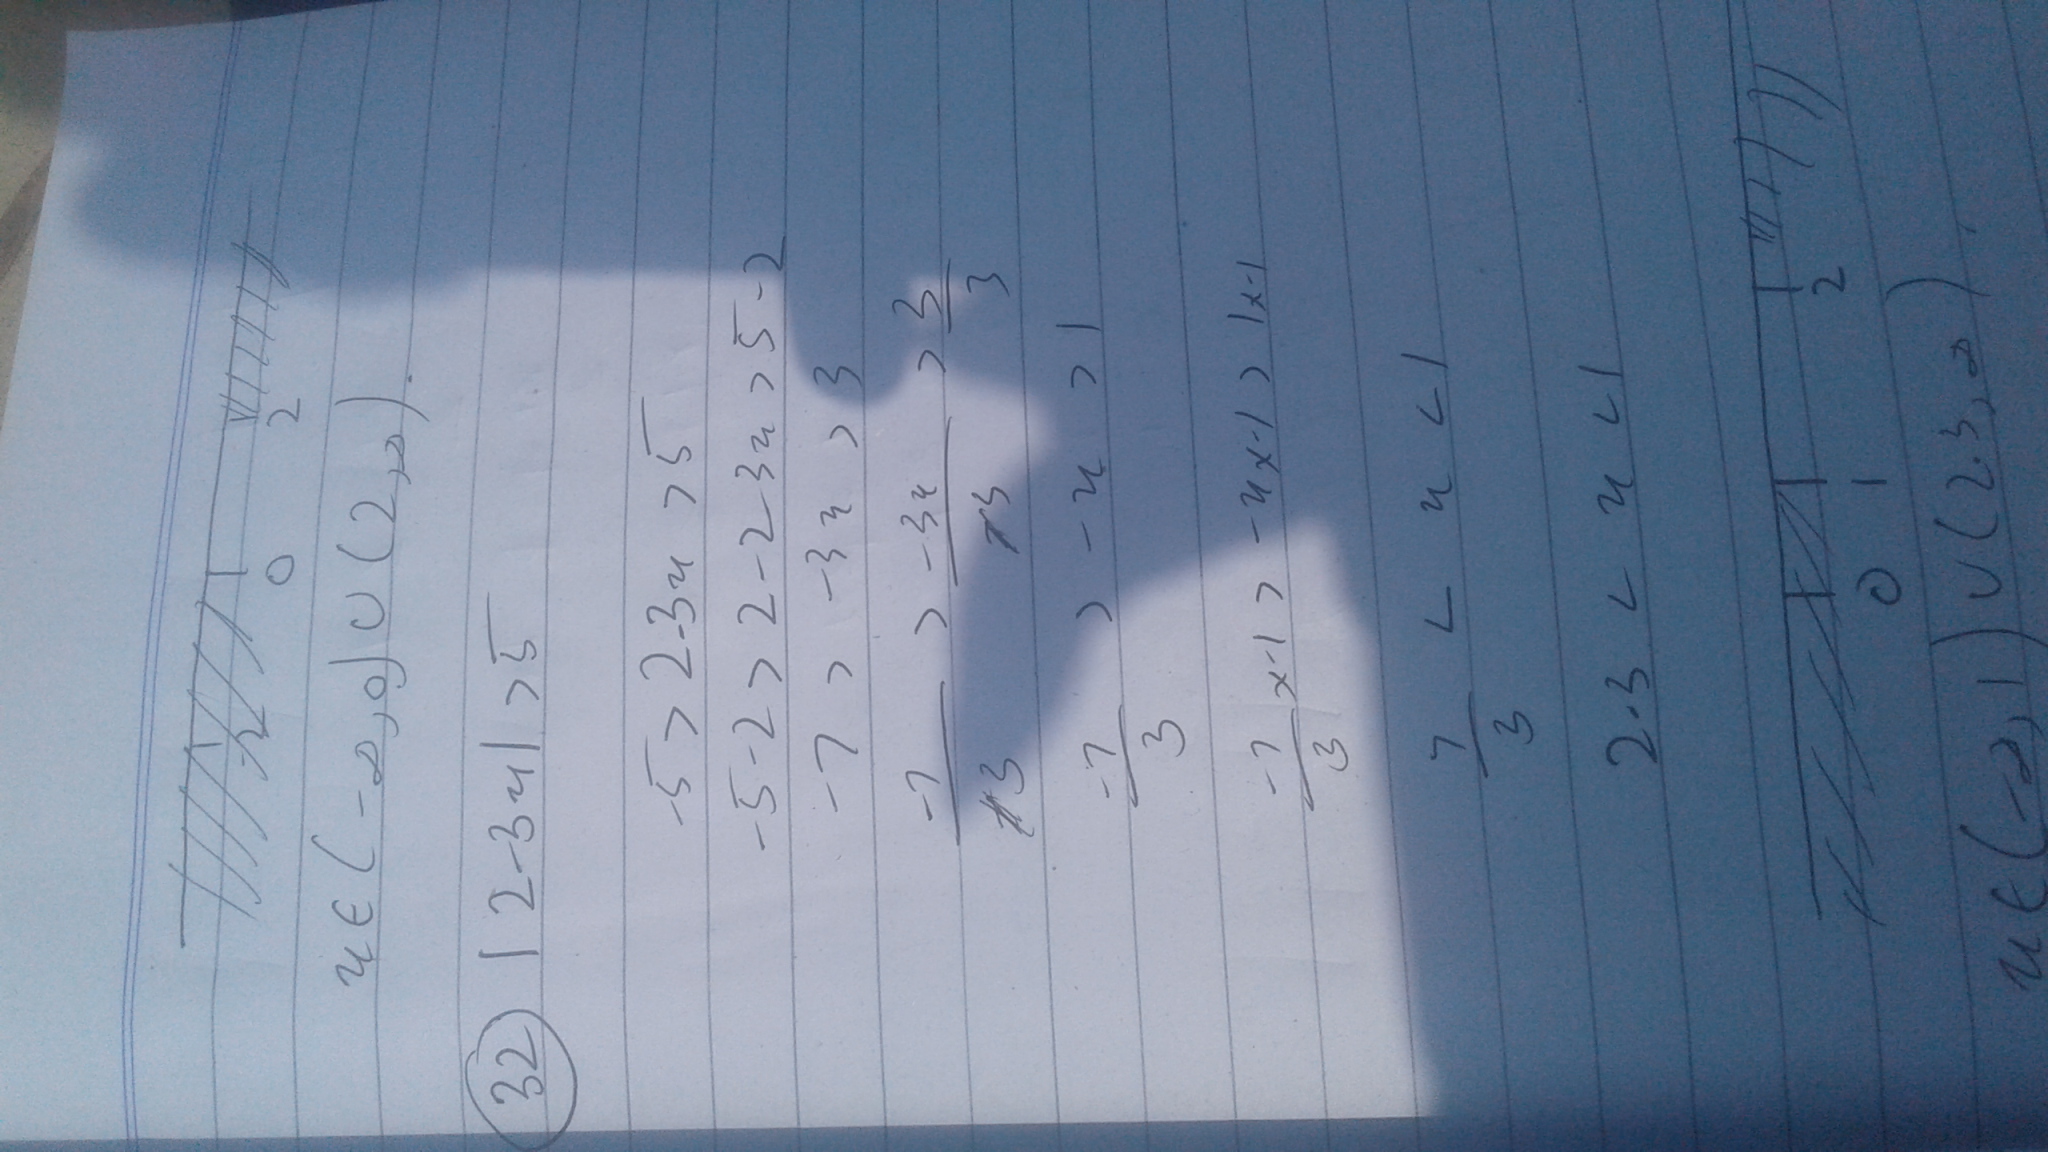 -2 0 2
x ∈ (-∞, 0] ∪ (2, ∞).
32 |2-3x| > 5
-5 > 2-3x > 5
-5-2 > 2-2-3x > 5-2
-7 > -3x > 3
-7/3 > -3x/3 > 3/3
-7/3 > -x > 1
-7/3 x-1 > -x x-1 > 1x-1
7/3 < x < 1
2.3 < x < 1
0 1 2
x ∈ (-∞, 1) ∪ (2.3, ∞).